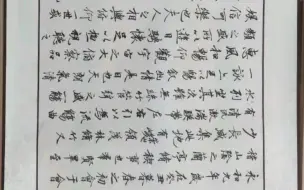 永和九年歲在癸丑暮春之初會于會
稽山陰之蘭亭脩禊事也群賢畢至
少長咸集此地有崇山峻領茂林脩竹又
有清流激湍暎帶左右引以為流觴曲
水列坐其次雖無絲竹管弦之盛一觴
一詠亦足以暢敘幽情是日也天朗氣清
惠風和暢仰觀宇宙之大俯察品類之
盛所以遊目騁懷足以極視聽之
娛信可樂也夫人之相與俯仰一世